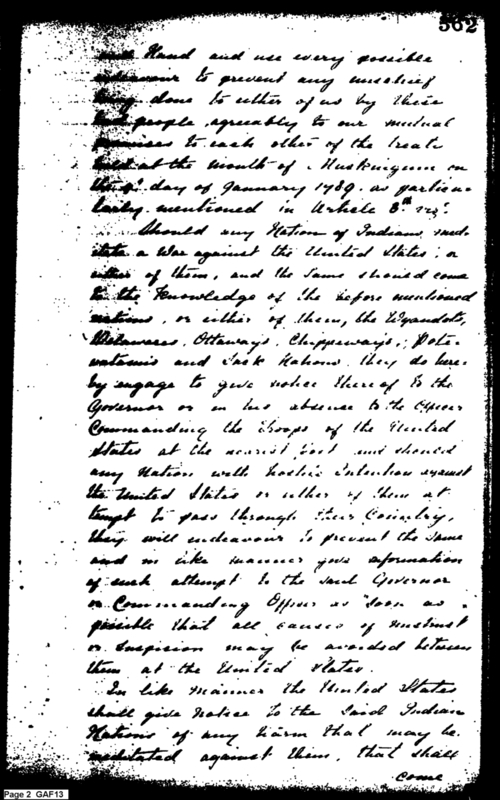 562
Hand and use every possible
endeavour to prevent any mischief
being done to either of us by these
people, agreeably to our mutual
promises to each other of the treaty
held at the mouth of Muskingum on
the 9th day of January 1789. as particu-
larly mentioned in Article 8th viz:
Should any Nation of Indians, med-
itate a War against the United States, or
either of them, and the same should come
to the Knowledge of the before mentioned
nations, or either of them, the Wyandots,
Delawares, Ottaways, Chippeways, Pote-
watamis and Sack Nations, they do here-
by engage to give notice thereof to the
Governor or in his absence to the Officer
Commanding the troops of the United
States at the nearest Post and should
any Nation with hostile intention against
the United States or either of them at
tempt to pass through their Country,
they will endeavour to prevent the same
and in like manner give information
of such attempt to the said Governor
or Commanding Officer as soon as
possible that all causes of mistrust
or suspicion may be avoided between
them at the United States.
In like manner the United States
shall give notice to the said Indian
Nations of any harm that may be
meditated against them, that shall
come
Page 2 GAF13